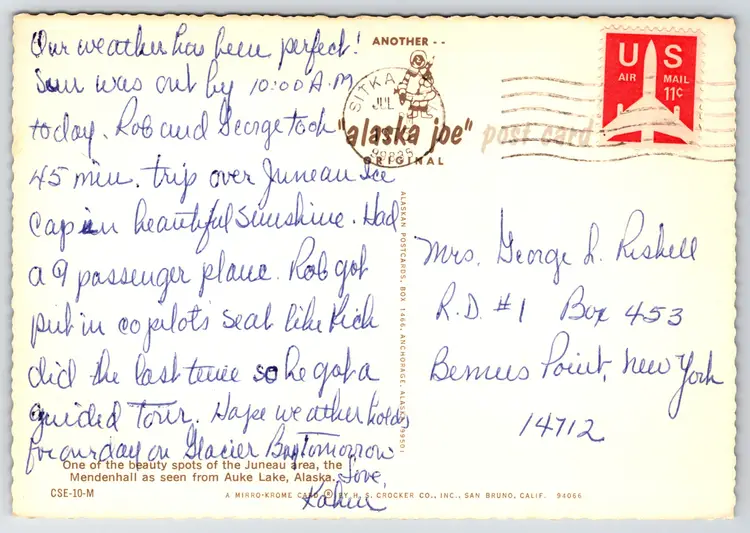 Our weather has been perfect!
Sun was out by 10:00 A.M
today. Rob and George took
45 min. trip over Juneau Ice
Cap in beautiful Sunshine. Had
a 9 passenger plane. Rob got
put in copilot's seat like Rick
did the last time so he got a
guided tour. Hope weather holds
for our day on Glacier Bay Tomorrow
Love,
ANOTHER - -
SITKA
JUL
"alaska joe" post card
ORIGINAL
US
AIR MAIL
11¢
ALASKAN POSTCARDS, BOX 1466, ANCHORAGE, ALASKA 99501
Mrs. George L. Riskell
R.D. #1 Box 453
Bemus Point, New York
14712
One of the beauty spots of the Juneau area, the
Mendenhall as seen from Auke Lake, Alaska.
CSE-10-M
A MIRRO-KROME CARD ® BY H. S. CROCKER CO., INC., SAN BRUNO, CALIF. 94066